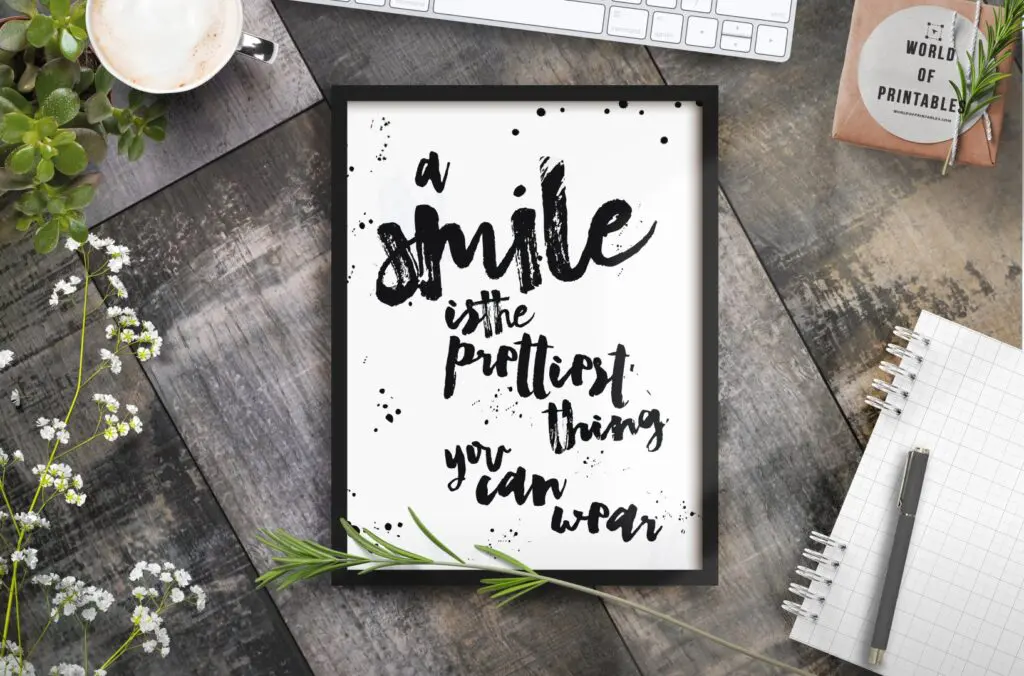 a
smile
is the
prettiest
thing
you
can
wear
WORLD
OF
PRINTABLES
WORLDOFPRINTABLES.COM